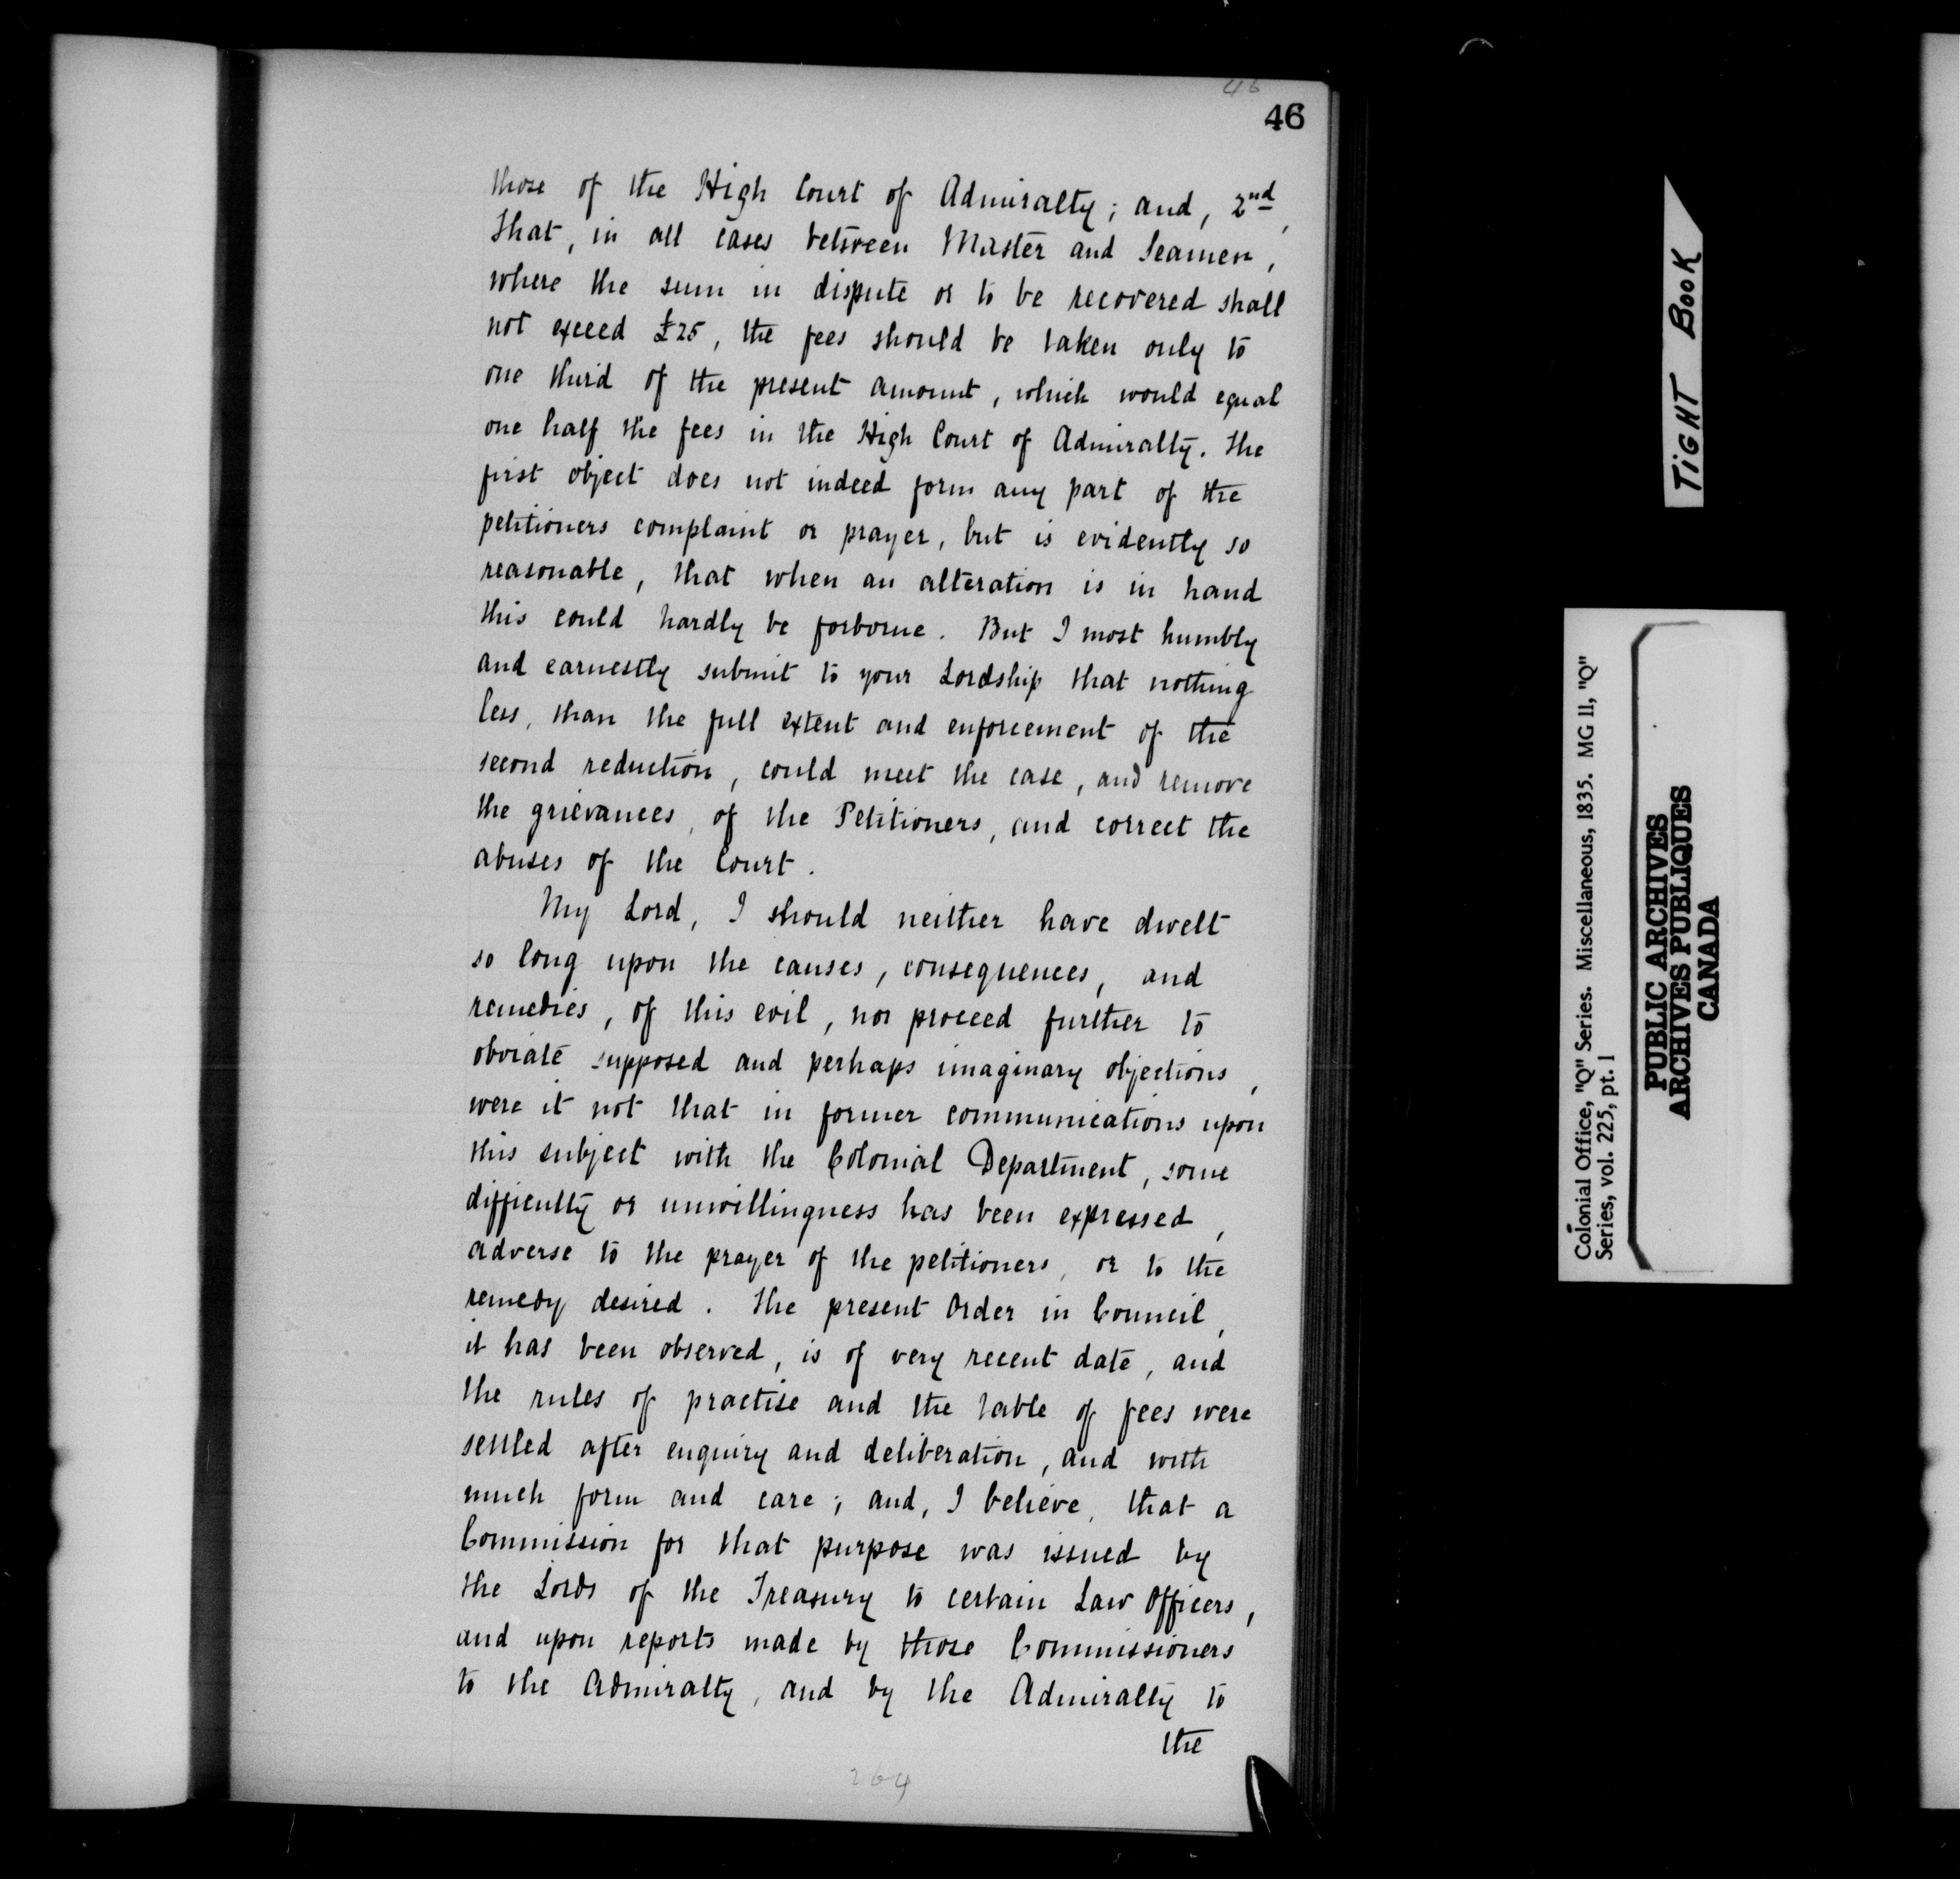 46
46
those of the High Court of Admiralty; and, 2nd,
that, in all cases between Master and Seamen,
where the sum in dispute or to be recovered shall
not exceed £25, the fees should be taken only to
one third of the present amount, which would equal
one half the fees in the High Court of Admiralty. The
first object does not indeed form any part of the
petitioners complaint or prayer, but is evidently so
reasonable, that when an alteration is in hand
this could hardly be forborne. But I most humbly
and earnestly submit to your Lordship that nothing
less, than the full extent and enforcement of the
second reduction, could meet the case, and remove
the grievances, of the Petitioners, and correct the
abuses of the Court.
My Lord, I should neither have dwelt
so long upon the causes, consequences, and
remedies, of this evil, nor proceed further to
obviate supposed and perhaps imaginary objections,
were it not that in former communications upon
this subject with the Colonial Department, some
difficulty or unwillingness has been expressed,
adverse to the prayer of the petitioners, or to the
remedy desired. The present Order in Council,
it has been observed, is of very recent date, and
the rules of practise and the table of fees were
settled after enquiry and deliberation, and with
much form and care; and, I believe, that a
Commission for that purpose was issued by
the Lords of the Treasury to certain Law Officers,
and upon reports made by those Commissioners
to the Admiralty, and by the Admiralty to
the
264
TIGHT BOOK
Colonial Office, "Q" Series. Miscellaneous, 1835. MG 11, "Q"
Series, vol. 225, pt. 1
PUBLIC ARCHIVES
ARCHIVES PUBLIQUES
CANADA